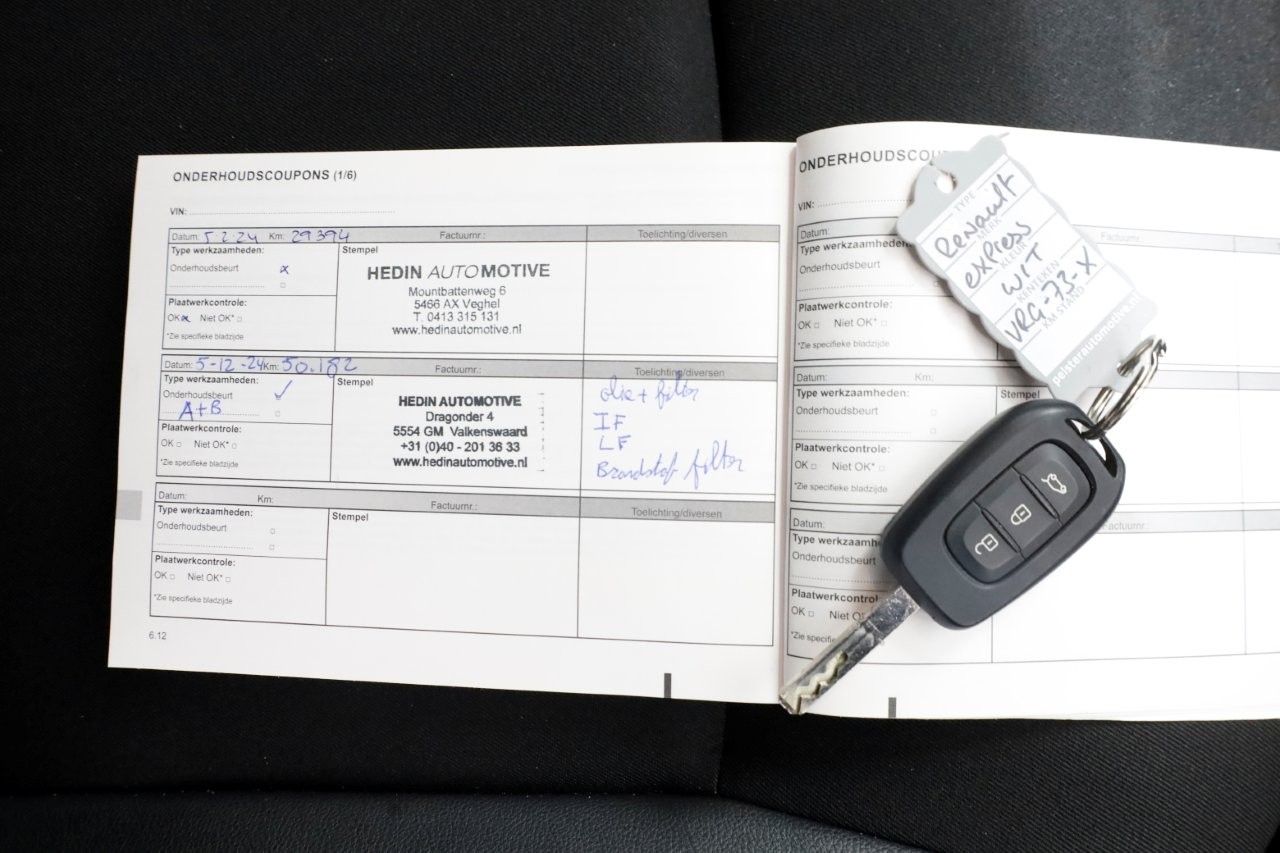 ONDERHOUDSCOUPONS (1/6)
VIN:
Datum: 5-2-24 Km: 29394 Factuurnr.: Toelichting/diversen
Type werkzaamheden: Stempel
Onderhoudsbeurt x
HEDIN AUTOMOTIVE
Mountbattenweg 6
5466 AX Veghel
T. 0413 315 131
www.hedinautomotive.nl
Plaatwerkcontrole:
OK x Niet OK*
*Zie specifieke bladzijde
Datum: 5-12-24 Km: 50.182 Factuurnr.: Toelichting/diversen
Type werkzaamheden: Stempel
Onderhoudsbeurt ✓
A+B
HEDIN AUTOMOTIVE
Dragonder 4
5554 GM Valkenswaard
+31 (0)40 - 201 36 33
www.hedinautomotive.nl
olie + filter
IF
LF
Brandstof filter
Plaatwerkcontrole:
OK Niet OK*
*Zie specifieke bladzijde
Datum: Km: Factuurnr.: Toelichting/diversen
Type werkzaamheden: Stempel
Onderhoudsbeurt
Plaatwerkcontrole:
OK Niet OK*
*Zie specifieke bladzijde
6.12
ONDERHOUDSCOU
VIN:
Datum: Factuurnr.
Type werkzaamheden
Onderhoudsbeurt
Plaatwerkcontrole:
OK Niet OK*
*Zie specifieke bladzijde
Datum: Km:
Type werkzaamheden: Stempel
Onderhoudsbeurt
Plaatwerkcontrole:
OK Niet OK*
*Zie specifieke bladzijde
Datum: Factuurnr.:
Type werkzaamh
Onderhoudsbeurt
Plaatwerkcontrol
OK Niet O
*Zie specifieke
TYPE
Renault
MERK
express
KLEUR
WIT
KENTEKEN
VRG-73-X
KM STAND
pelsterautomotive.nl